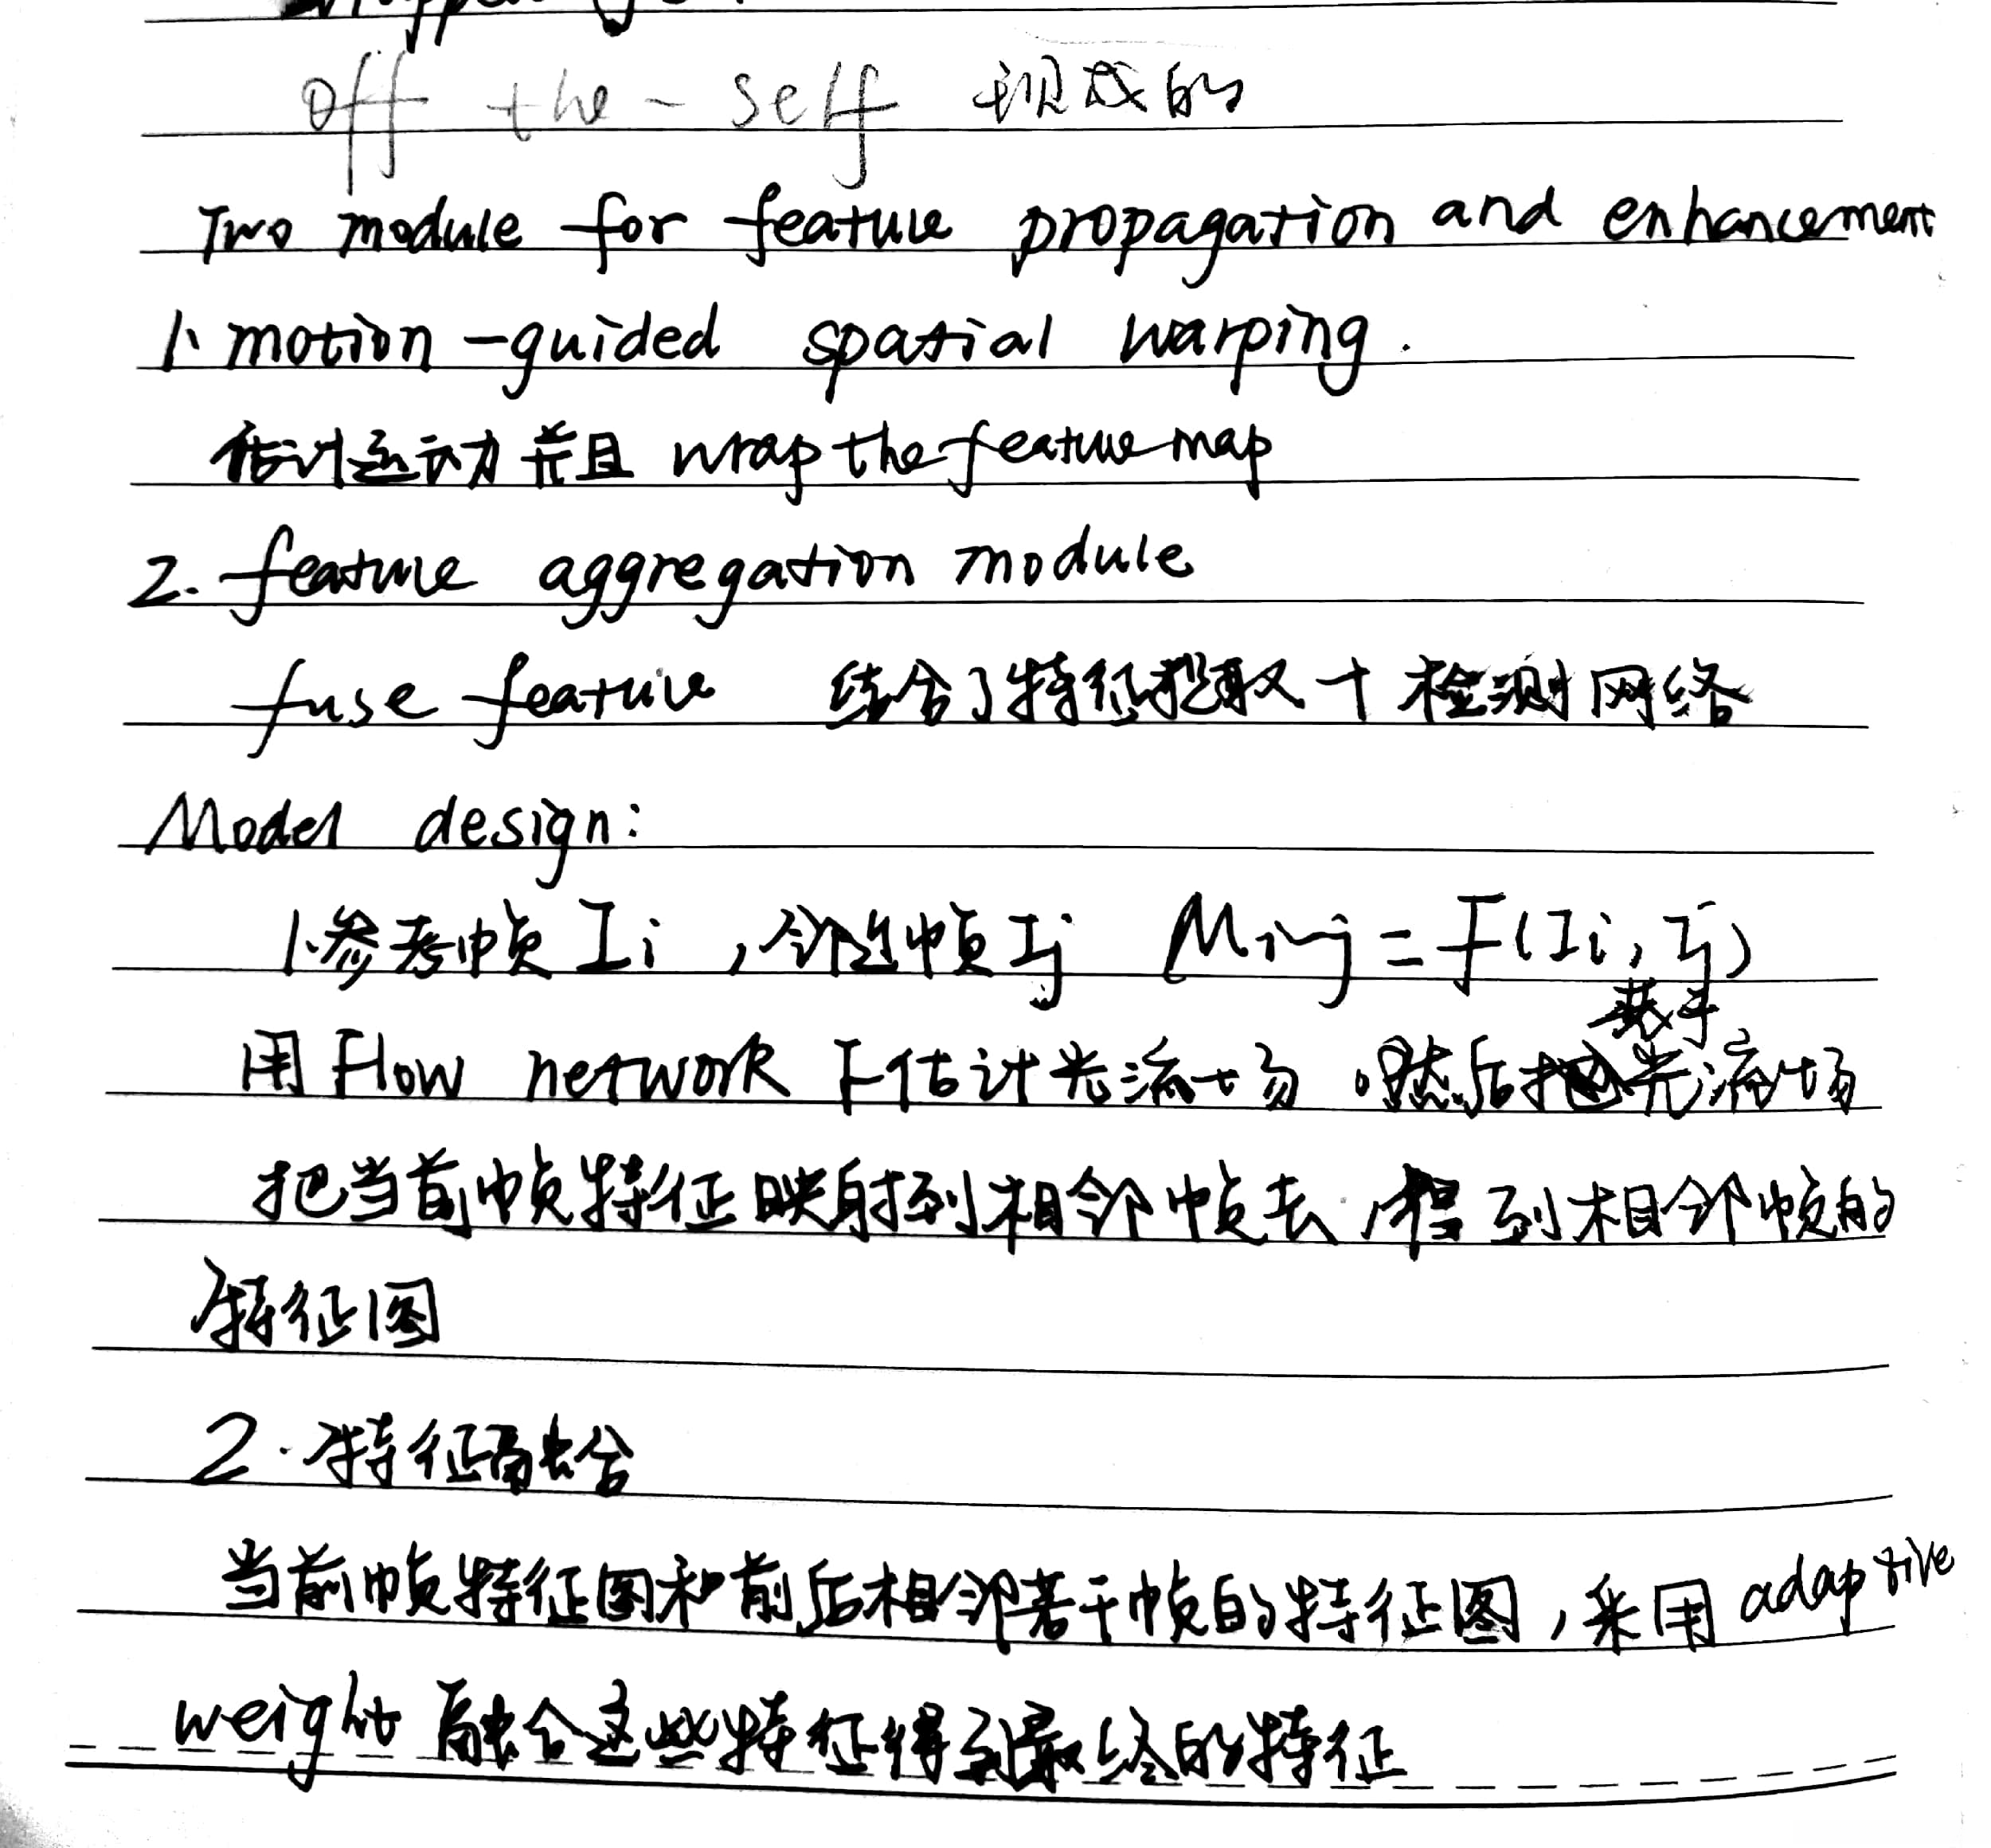 off the - self 现成的
Two module for feature propagation and enhancement
1. motion-guided spatial warping.
估计运动并且 wrap the feature map
2. feature aggregation module
fuse feature 结合了特征提取 + 检测网络
Model design:
1.参考帧 Ii ,邻近帧 Ij Mi→j = F(Ii, Ij)
基于
用 Flow network F估计光流场。然后把光流场
把当前帧特征映射到相邻帧去,得到相邻帧的
特征图
2.特征融合
当前帧特征图和前后相邻若干帧的特征图,采用 adaptive
weight 融合这些特征得到最终的特征